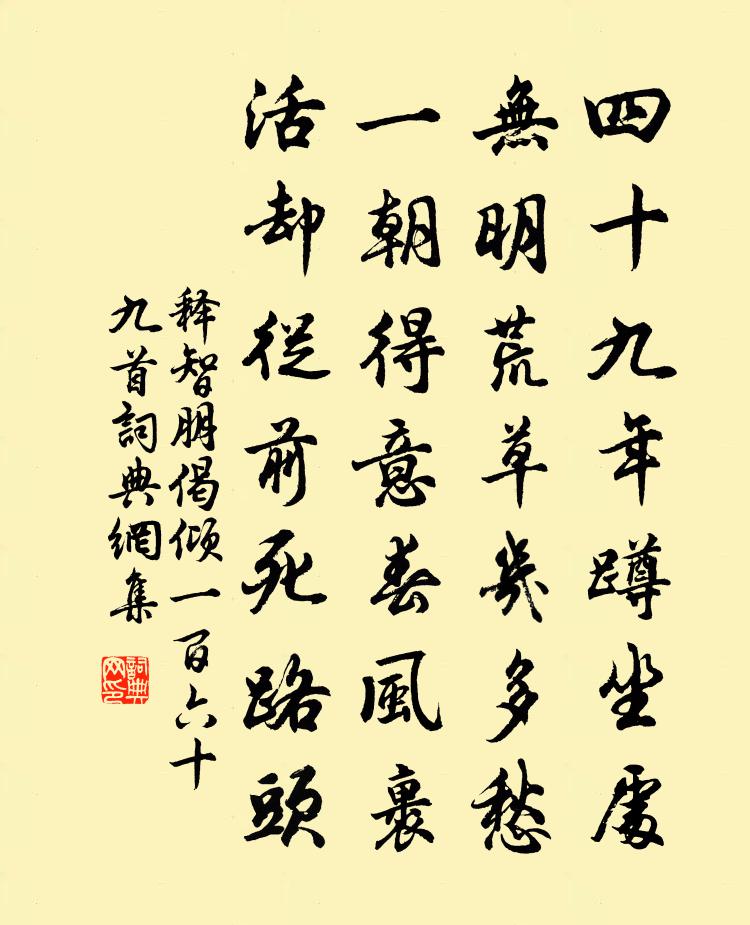 四十九年蹲坐處
無明荒草幾多愁
一朝得意春風裏
活却從前死路頭
释智朋偈倾一百六十
九首詞典網集
詞典
网印